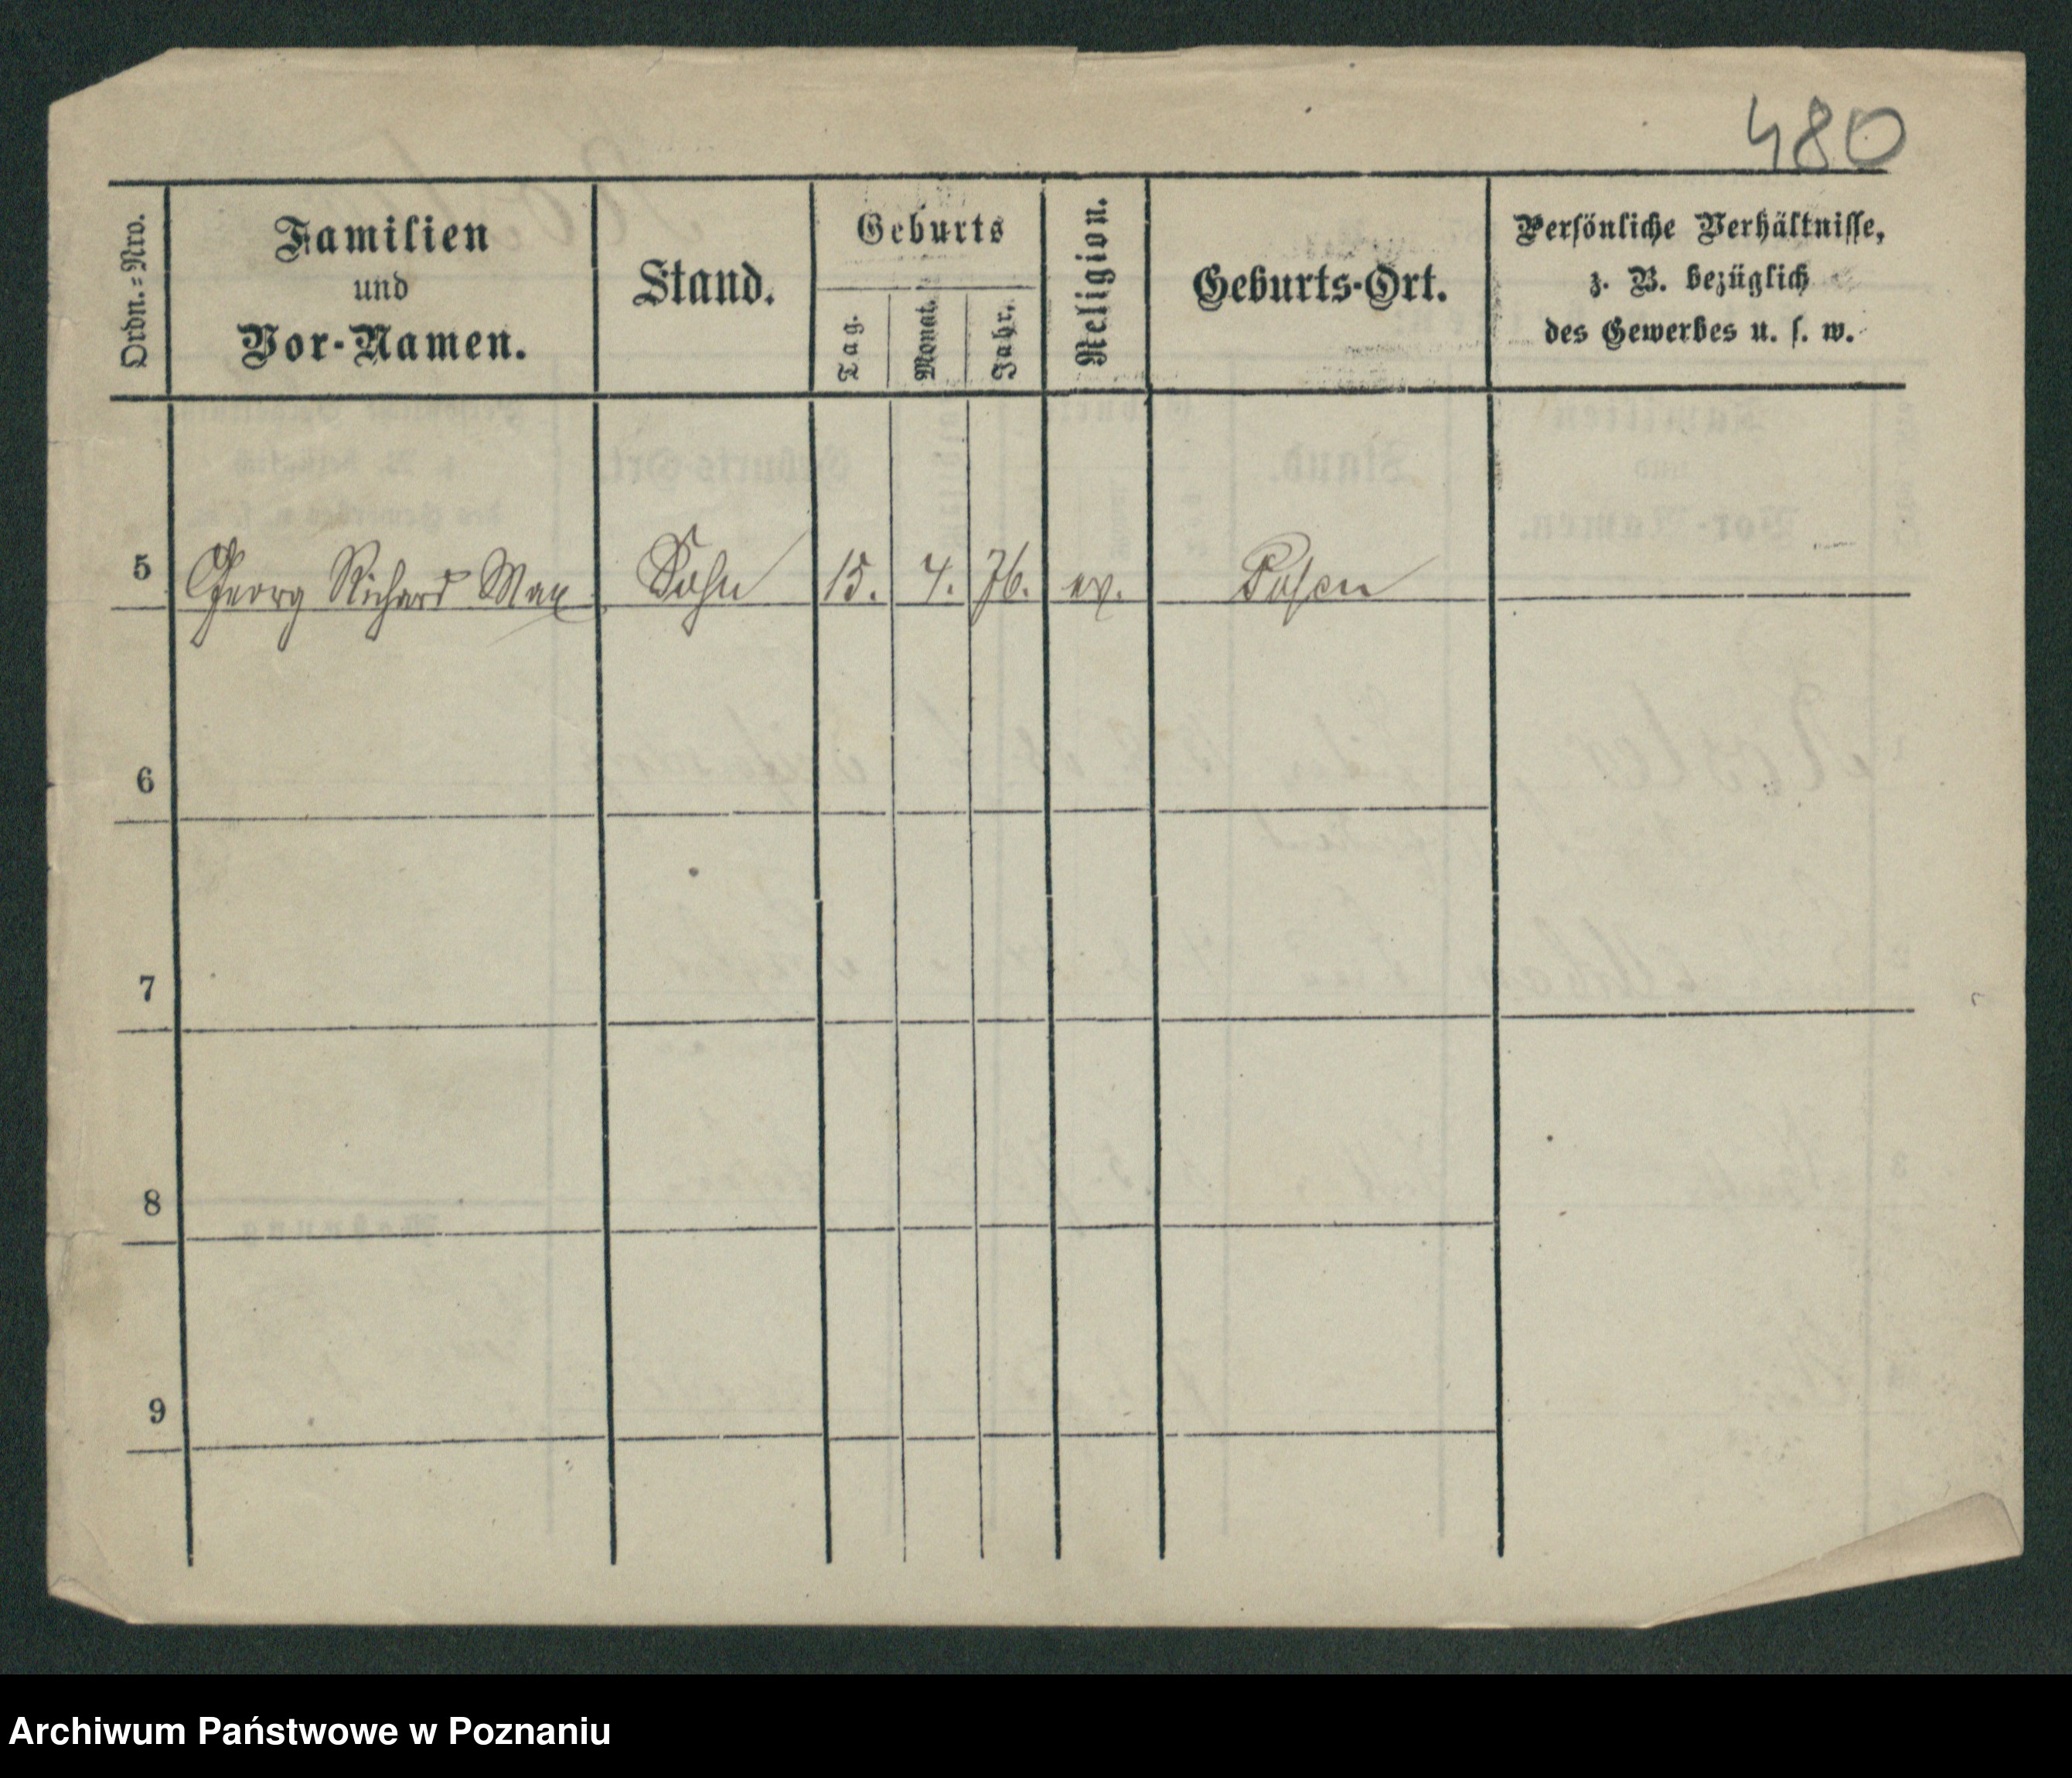 480
Ordn.-Nro.
Familien
und
Vor-Namen.
Stand.
Geburts
Tag.
Monat.
Jahr.
Religion.
Geburts-Ort.
Persönliche Verhältnisse,
z. B. bezüglich
des Gewerbes u. s. w.
5 Georg Richard Max Sohn 15. 4. 76. ev. Posen
6
7
8
9
Archiwum Państwowe w Poznaniu